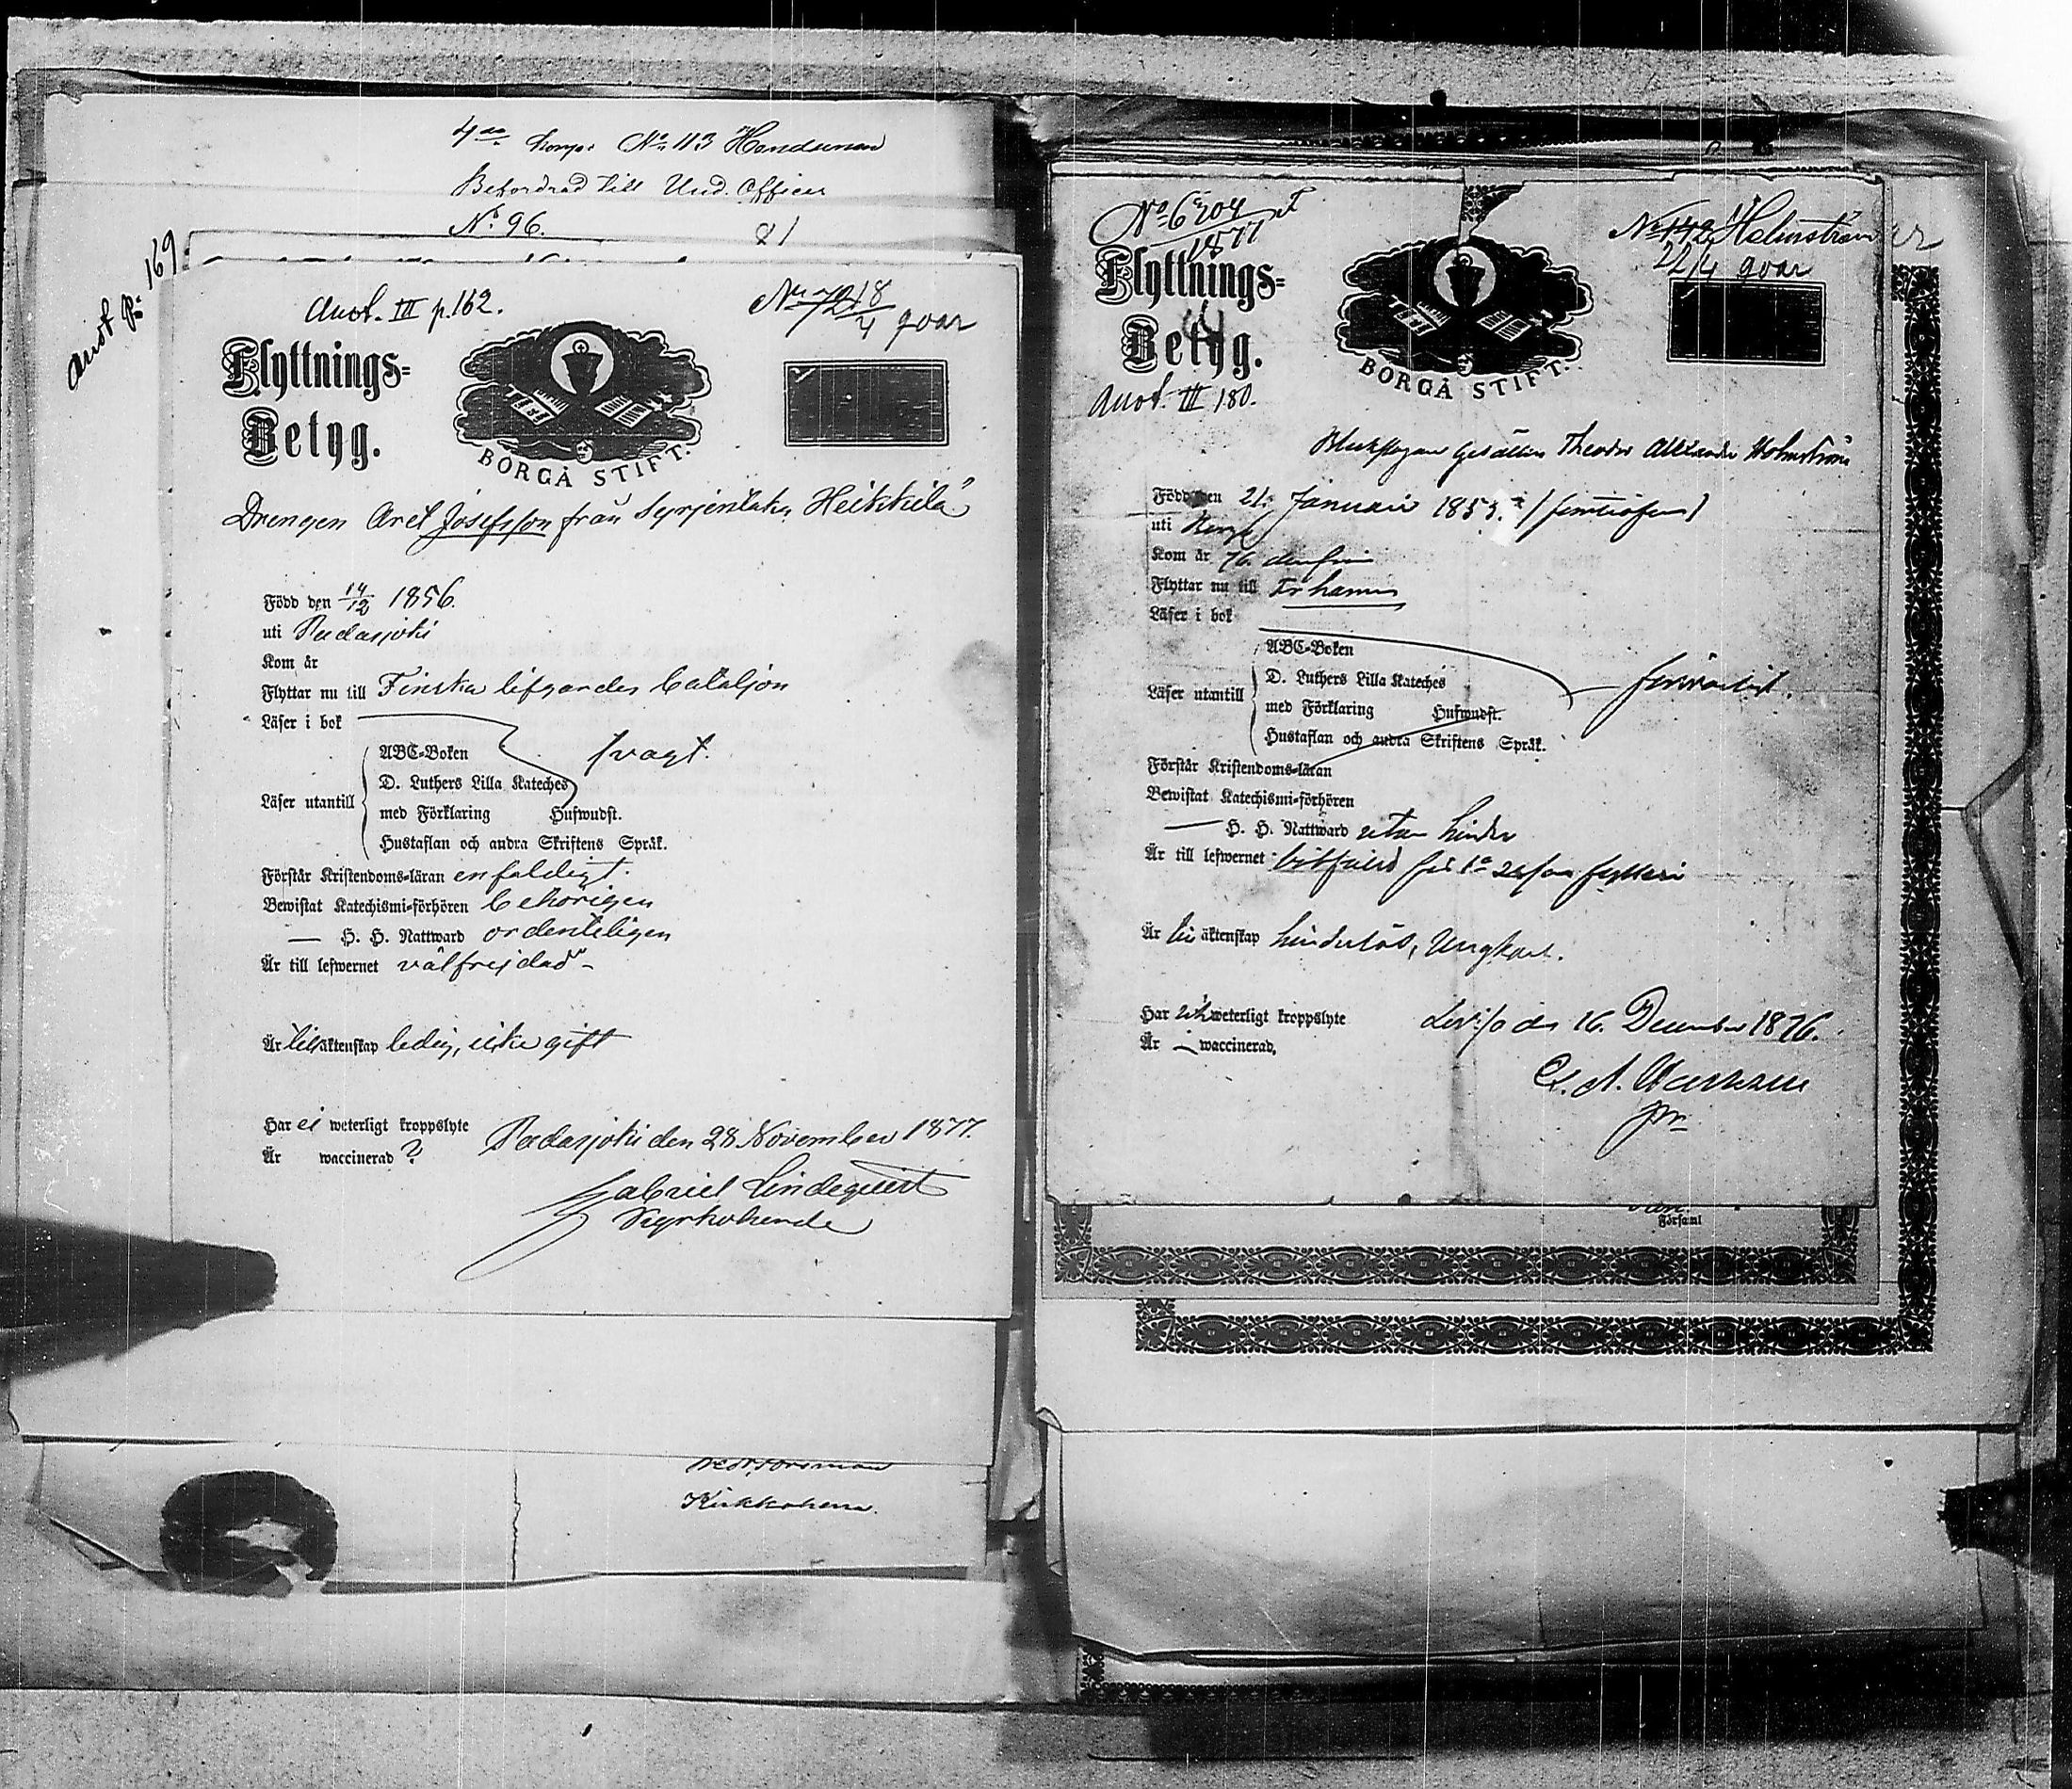 4de Komp: No 113 Handunen
Befordrad till Und. Officer
No 96.
81
Anot. p: 169
Anot. III p. 162.
qvar
Flyttnings-
Betyg.
BORGÅ STIFT.
Drengen Axel Josefsson från Syrjentaka Heikkilä
Född den 14/12 1856.
uti Padasjoki
Kom år
Flyttar nu till Finska lifgardes bataljon
Läser i bok
ABC-Boken
svagt.
D. Luthers Lilla Kateches
Läser utantill
med Förklaring Hufwudst.
Hustaflan och andra Skriftens Språk.
Förstår Kristendoms-läran enfaldigt.
Bewistat Katechismi-förhören behörigen
— H. H. Nattward ordenteligen
Är till lefwernet välfrejdad
Är till äktenskap ledig, icke gift
Har ei weterligt kroppslyte
Är waccinerad ?
Padasjoki den 28 November 1877.
Gabriel Lindequist
Kyrkoherde
Kirkkoherra.
No 6204
1877
No 142 Holmström
22/4 qvar
Flyttnings-
Betyg.
BORGÅ STIFT.
Anot. III 180.
Gesällen Theodor Alexander Holmström
Född den 21. Januari 1855.
uti
Kom år 76
Flyttar nu till
Läser i bok
ABC-Boken
D. Luthers Lilla Kateches
försvarligt.
Läser utantill
med Förklaring Hufwudst.
Hustaflan och andra Skriftens Språk.
Förstår Kristendoms-läran
Bewistat Katechismi-förhören
— H. H. Nattward utan hinder
Är till lefwernet
Är till äktenskap hinderlös, Ungkarl.
Har weterligt kroppslyte
Är — waccinerad.
den 16. December 1876.
Församl